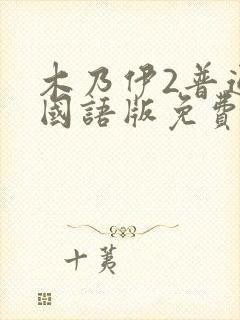 木乃伊2普通
國語版免費
十荑